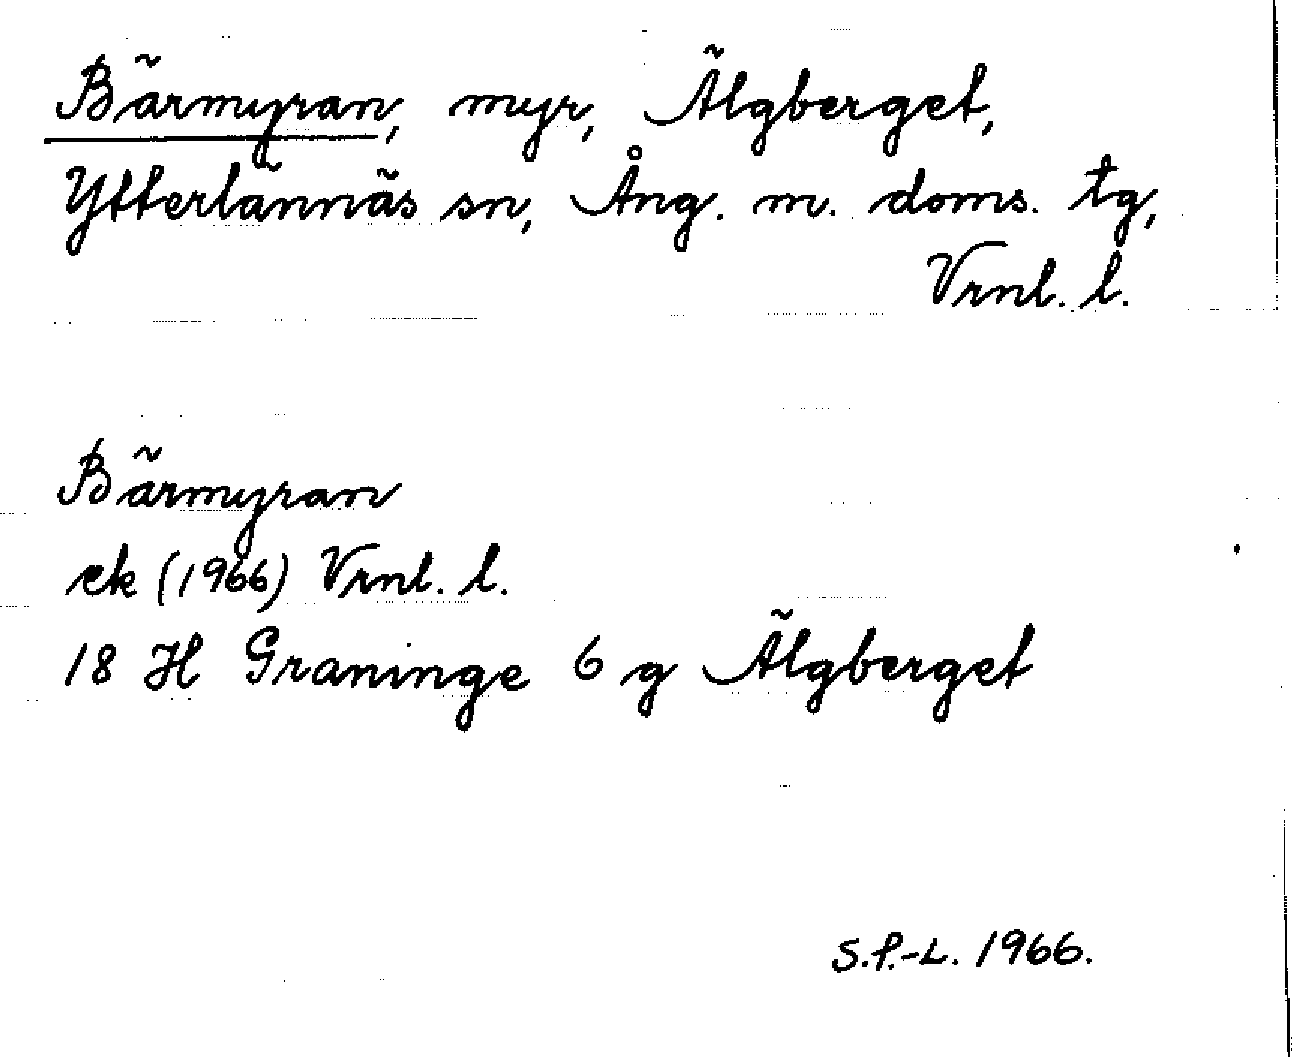 Bärmyran, myr, Älgberget,
Ytterlännäs sn, Ång. m. doms. tg,
Vrnl. l.
Bärmyran
ek (1966) Vrnl. l.
18 H Graninge 6 g Älgberget
S.P.-L. 1966.